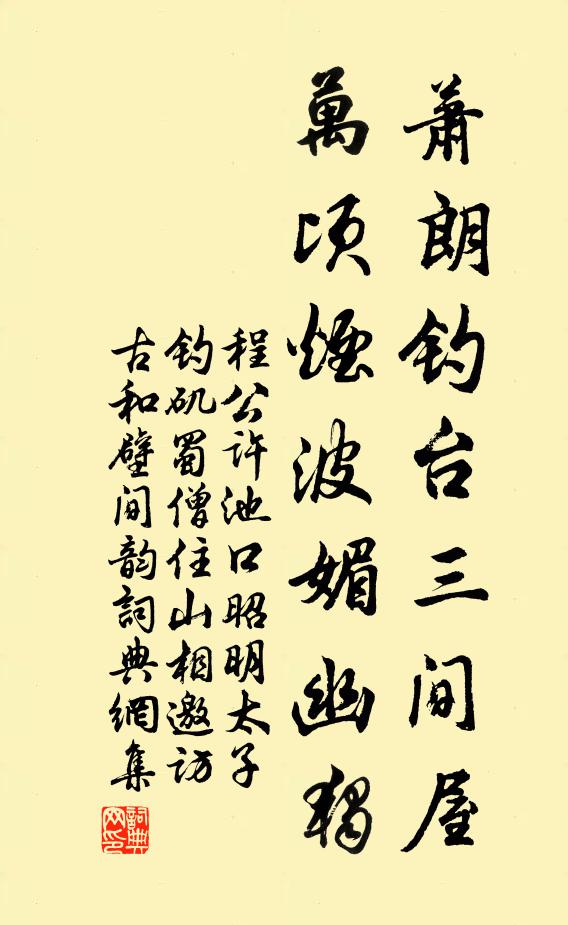 蕭朗钓台三间屋
萬顷煙波媚幽独
程公许池口昭明太子
钓矶蜀僧住山相邀访
古和壁间韵詞典網集
詞典
网印